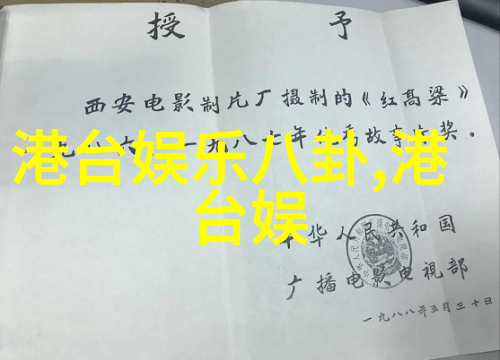 授 予
西安电影制片厂摄制的《红高粱》
九八六 一九八七年 故事 奖。
港台娱乐八卦,港
台娱
中华人民共和国
广播电影电視部
一九八八年三月三十日